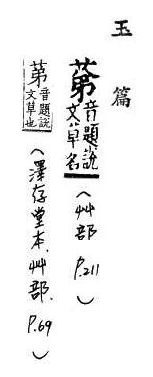 玉篇
苐音題說文草名(艸部 P.211)
苐音題說文草也(澤存堂本.艸部.P.69)